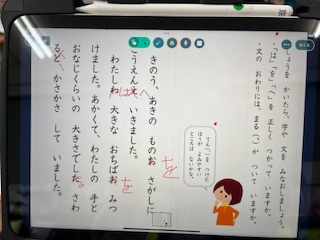 しょうを かいたら、字や 文を みなおしましょう。
・「は」「を」「へ」を 正しく つかって いますか。
・文の おわりには、まる(。)が ついて いますか。
てん(、)を つけた
ほうが よみやすい
ところは ないかな。
きのう、あきの ものお さがしに
こうえんえ いきました。
わたしわ 大きな おちばお みつ
けました。あかくて、わたしの 手と
おなじくらいの 大きさでした。さわ
ると、かさかさ して いました。
を
へ
は
を